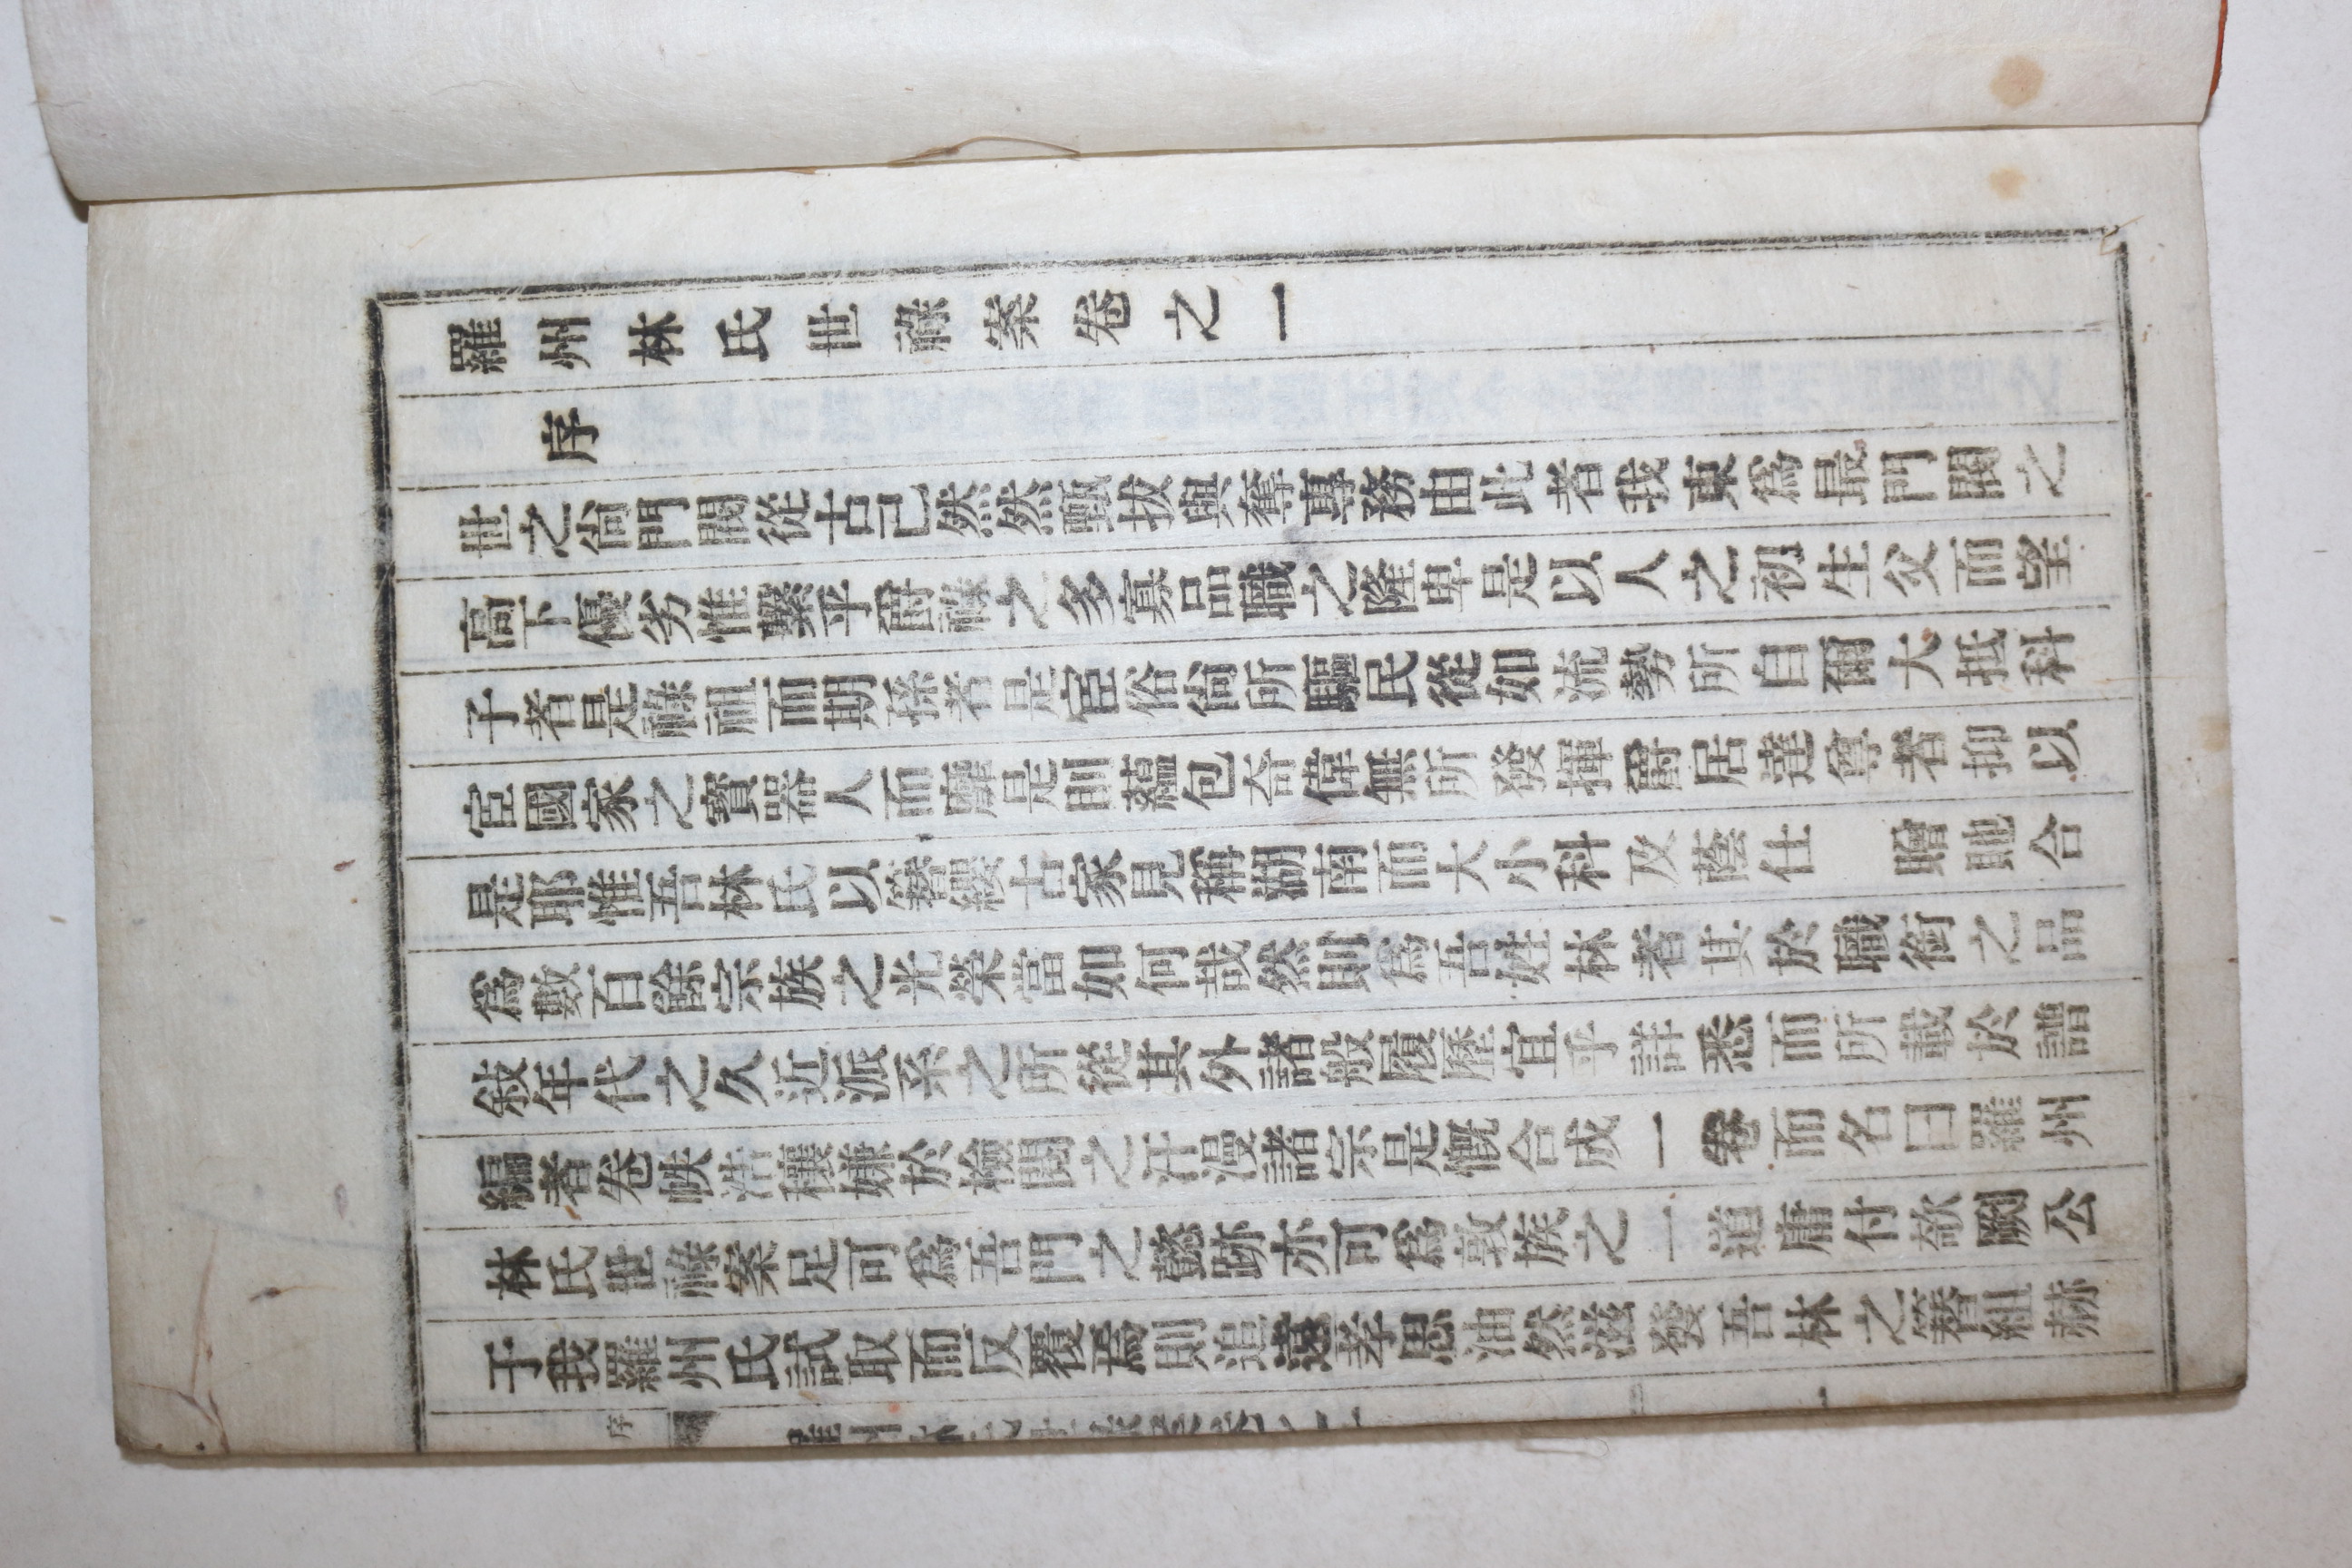 羅州林氏世祿案卷之一
序
世之尙門閥從古已然然甄拔與奪專務由此者我東爲最門閥之
高下優劣惟繫乎爵祿之多寡品職之隆卑是以人之初生父而望
子者是祿祖而期孫者是宦俗尙所驅民從如流勢所自爾大抵科
宦國家之寶器人而靡是則蘊包奇偉無所發揮爵居達尊者抑以
是耶惟吾林氏以簪纓古家見稱湖南而大小科及蔭仕　贈貤合
爲數百餘宗族之光榮當如何哉然則爲吾姓林者其於職銜之品
敍年代之久近派系之所從其外諸般履歷宜乎詳悉而所載於譜
編者卷帙浩穰嫌於檢閱之汗漫諸宗是慨合成一卷而名曰羅州
林氏世祿案足可爲吾門之懿跡亦可爲敦族之一道庸付欹劂公
于我羅州氏試取而反覆焉則追遠孝思油然滋發吾林之簪組赫
序　羅州林氏世祿案卷之一　一